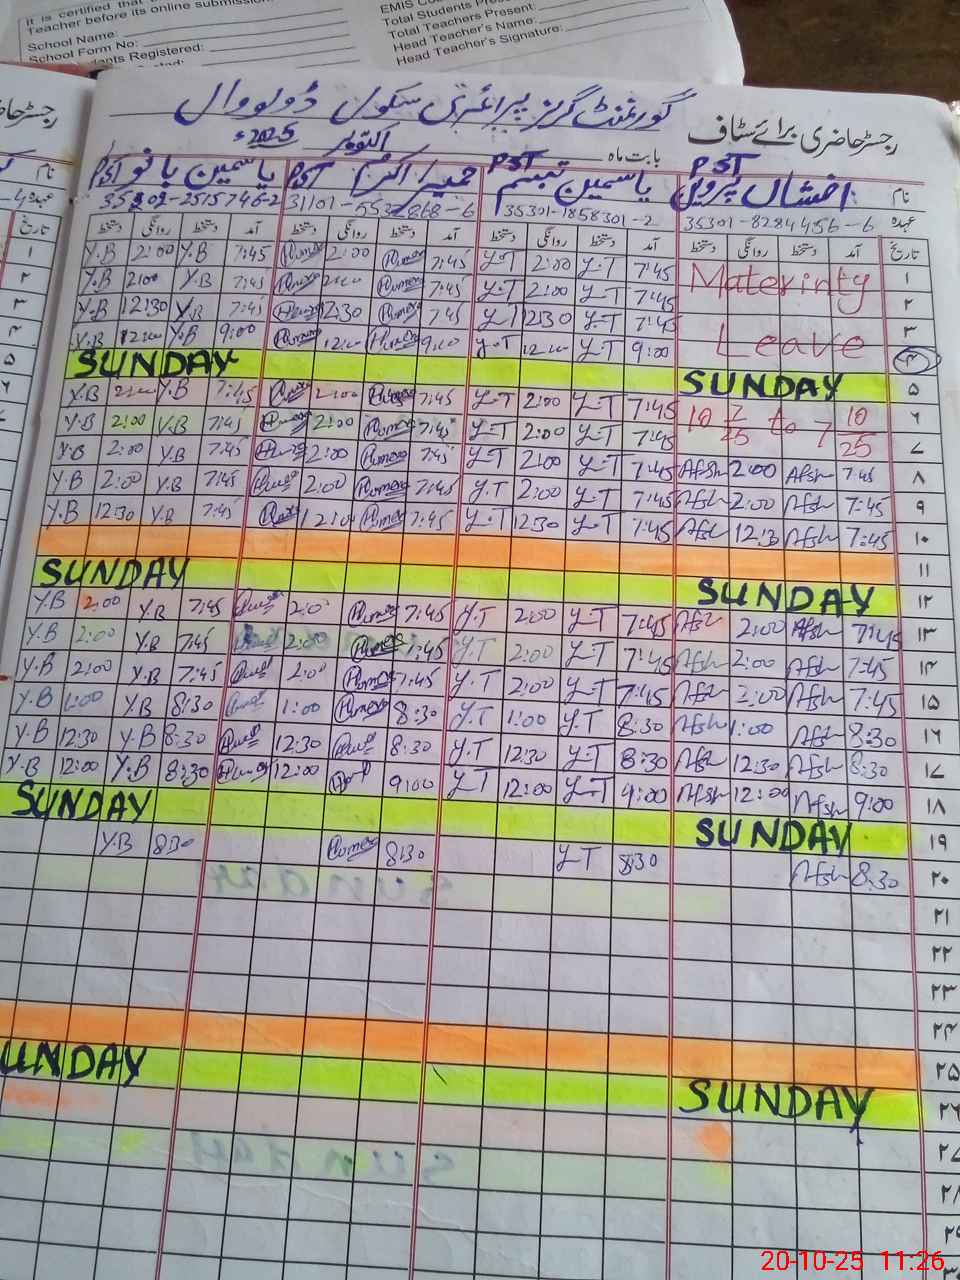 It is certified that
Teacher before its online submission
School Name:
School Form No:
Students Registered:
EMIS Co
Total Students Prese
Total Teachers Present:
Head Teacher's Name:
Head Teacher's Signature:
گورنمنٹ گرلز پرائمری سکول ڈولووال
رجسٹر حاضری برائے سٹاف
بابت ماہ اکتوبر 2025ء
نام افشاں پروین PST یاسمین تبسم PST حمیرا اکرم PST یاسمین بانو PST
عہدہ 35301-8284456-6 35301-1858301-2 31101-5532868-6 35302-2515746-2
تاریخ آمد دستخط روانگی دستخط آمد دستخط روانگی دستخط آمد دستخط روانگی دستخط آمد دستخط روانگی دستخط
Y.B 2:00 Y.B 7:45 2:00 7:45 Y.T 2:00 Y.T 7:45 Materinty ۱
Y.B 2:00 Y.B 7:45 7:45 Y.T 2:00 Y.T 7:45 ۲
Y.B 12:30 Y.B 7:45 12:30 7:45 Y.T 12:30 Y.T 7:45 ۳
Y.B 12:00 Y.B 9:00 12:00 9:00 Y.T 12:00 Y.T 9:00 Leave ۴
SUNDAY SUNDAY ۵
Y.B 2:00 Y.B 7:45 2:00 7:45 Y.T 2:00 Y.T 7:45 10 7/25 to 7 10/25 ۶
Y.B 2:00 Y.B 7:45 2:00 7:45 Y.T 2:00 Y.T 7:45 ۷
Y.B 2:00 Y.B 7:45 2:00 7:45 Y.T 2:00 Y.T 7:45 Afsh 2:00 Afsh 7:45 ۸
Y.B 2:00 Y.B 7:45 2:00 7:45 Y.T 2:00 Y.T 7:45 Afsh 2:00 Afsh 7:45 ۹
Y.B 12:30 Y.B 7:45 7:45 Y.T 12:30 Y.T 7:45 Afsh 12:3 Afsh 7:45 ۱۰
۱۱
SUNDAY SUNDAY ۱۲
Y.B 2:00 Y.B 7:45 2:0 7:45 Y.T 2:00 Y.T 7:45 Afsh 2:00 Afsh 7:45 ۱۳
Y.B 2:00 Y.B 7:45 2:00 7:45 Y.T 2:00 Y.T 7:45 Afsh 2:00 Afsh 7:45 ۱۴
Y.B 2:00 Y.B 7:45 2:0 7:45 Y.T 2:00 Y.T 7:45 Afsh 2:00 Afsh 7:45 ۱۵
Y.B 1:00 Y.B 8:30 1:00 8:30 Y.T 1:00 Y.T 8:30 Afsh 1:00 Afsh 8:30 ۱۶
Y.B 12:30 Y.B 8:30 12:30 8:30 Y.T 12:30 Y.T 8:30 Afsh 12:30 Afsh 8:30 ۱۷
Y.B 12:00 Y.B 8:30 12:00 9:00 Y.T 12:00 Y.T 9:00 Afsh 12:00 Afsh 9:00 ۱۸
SUNDAY SUNDAY ۱۹
Y.B 8:30 8:30 Y.T 8:30 Afsh 8:30 ۲۰
۲۱
۲۲
۲۳
۲۴
۲۵
SUNDAY SUNDAY ۲۶
۲۷
۲۸
20-10-25 11:26